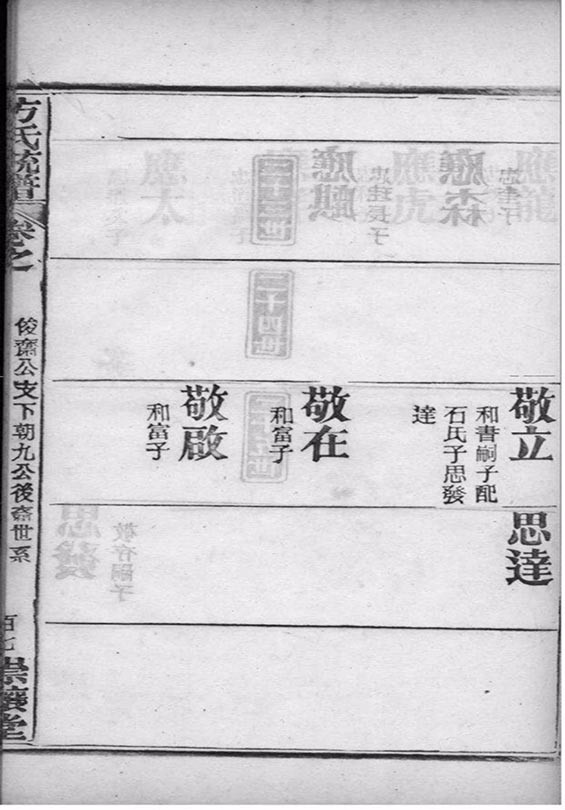 敬立
和書嗣子配
石氏子思發
達
思達
敬在
和富子
敬啟
和富子
方氏統譜
卷之
俊齋公支下朝九公後裔世系
百七
崇讓堂
應龍
應森
應虎
應麒
應太
二十四世
思發
敬存嗣子